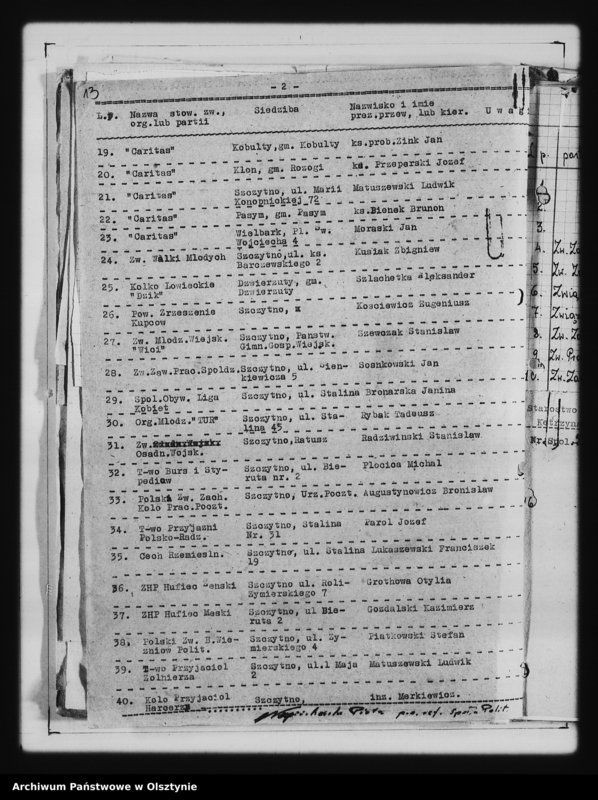 13
- 2 -
L.p. Nazwa stow. zw., Siedziba Nazwisko i imie U w a g i
org.lub partii prez.przew, lub kier.
19. "Caritas" Kobulty,gm. Kobulty ks.prob.Zink Jan
20. "Caritas" Klon, gm. Rozogi ks. Przeperski Jozef
21. "Caritas" Szczytno, ul. Marii Matuszewski Ludwik
Konopnickiej 72
22. "Caritas" Pasym, gm. Pasym ks.Bionek Brunon
23. "Caritas" Wielbark, Pl. Sw. Moraski Jan
Wojciecha 4
24. Zw. Walki Mlodych Szczytno,ul. ks. Kusiak Zbigniew
Barczewskiego 2
25. Kolko Lowieckie Dzwierzuty, gm. Szlachetka Aleksander
"Dzik" Dzwierzuty
26. Pow. Zrzeszenie Szczytno, x Kosciewicz Eugeniusz
Kupcow
27. Zw. Mlodz.Wiejsk. Szczytno, Panstw. Szewczak Stanislaw
"Wici" Gimn.Gosp.Wiejsk.
28. Zw.Zaw.Prac.Spoldz. Szczytno, ul. Sien- Sosnkowski Jan
kiewicza 5
29. Spol.Obyw. Liga Szczytno, ul. Stalina Bronarska Janina
Kobiet
30. Org.Mlodz."TUR" Szczytno, ul. Sta- Rybak Tadeusz
lina 45
31. Zw. Szczytno,Ratusz Radziwinski Stanislaw
Osadn.Wojsk.
32. T-wo Burs i Sty- Szczytno, ul. Bie- Plocica Michal
pediow ruta nr. 2
33. Polski Zw. Zach. Szczytno, Urz.Poczt. Augustynowicz Bronislaw
Kolo Prac.Poczt.
34. T-wo Przyjazni Szczytno, Stalina Parol Jozef
Polsko-Radz. Nr. 31
35. Cech Rzemiesln. Szczytno, ul. Stalina Lukaszewski Franciszek
19
36. ZHP Hufiec Zenski Szczytno ul. Roli- Grothowa Otylia
Zymierskiego 7
37. ZHP Hufiec Meski Szczytno, ul Bie- Gozdalski Kazimierz
ruta 2
38. Polski Zw. B.Wie- Szczytno, ul. Zy- Piatkowski Stefan
zniow Polit. mierskiego 4
39. T-wo Przyjaciol Szczytno, ul.1 Maja Matuszewski Ludwik
Zolnierza 2
40. Kolo Przyjaciol Szczytno, inz. Merkiewicz.
Harcerz
p.o. ref. Polit
p.
2.
3.
4. Zw. Za
5. Zw. Z
6. Zwią
7. Zwią
8. Zw. Za
9. Zw. Pr
10. Zw. Za
Starostwo
Kętrzyn
Nr. Spol.
Archiwum Państwowe w Olsztynie